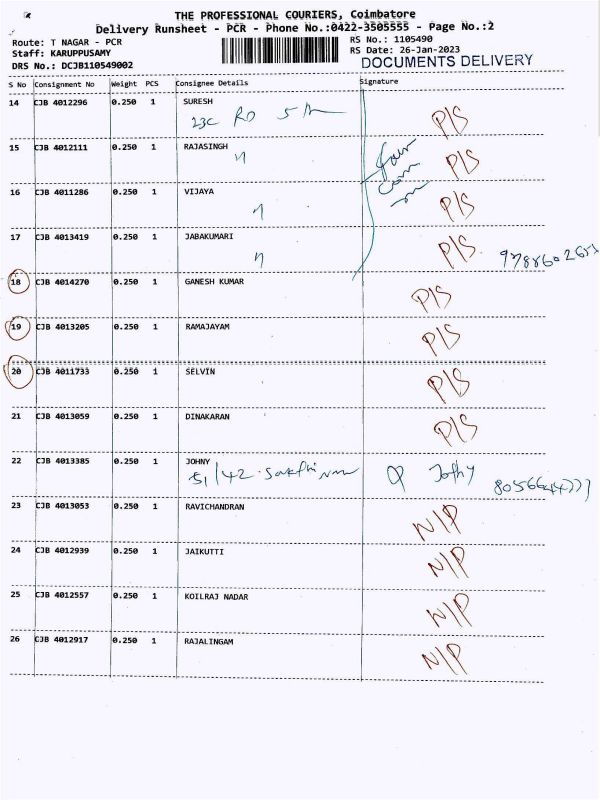 THE PROFESSIONAL COURIERS, Coimbatore
Delivery Runsheet - PCR - Phone No.:0422-3505555 - Page No.:2
Route: T NAGAR - PCR
RS No.: 1105490
Staff: KARUPPUSAMY
RS Date: 26-Jan-2023
DRS No.: DCJB110549002
DOCUMENTS DELIVERY
S No Consignment No Weight PCS Consignee Details Signature
14 CJB 4012296 0.250 1 SURESH P/S
23C RD 5th
15 CJB 4012111 0.250 1 RAJASINGH P/S
16 CJB 4011286 0.250 1 VIJAYA P/S
17 CJB 4013419 0.250 1 JABAKUMARI P/S
18 CJB 4014270 0.250 1 GANESH KUMAR P/S
19 CJB 4013205 0.250 1 RAMAJAYAM P/S
20 CJB 4011733 0.250 1 SELVIN P/S
21 CJB 4013059 0.250 1 DINAKARAN P/S
22 CJB 4013385 0.250 1 JOHNY
51/42 Jothy 8056644777
23 CJB 4013053 0.250 1 RAVICHANDRAN N/P
24 CJB 4012939 0.250 1 JAIKUTTI N/P
25 CJB 4012557 0.250 1 KOILRAJ NADAR N/P
26 CJB 4012917 0.250 1 RAJALINGAM N/P